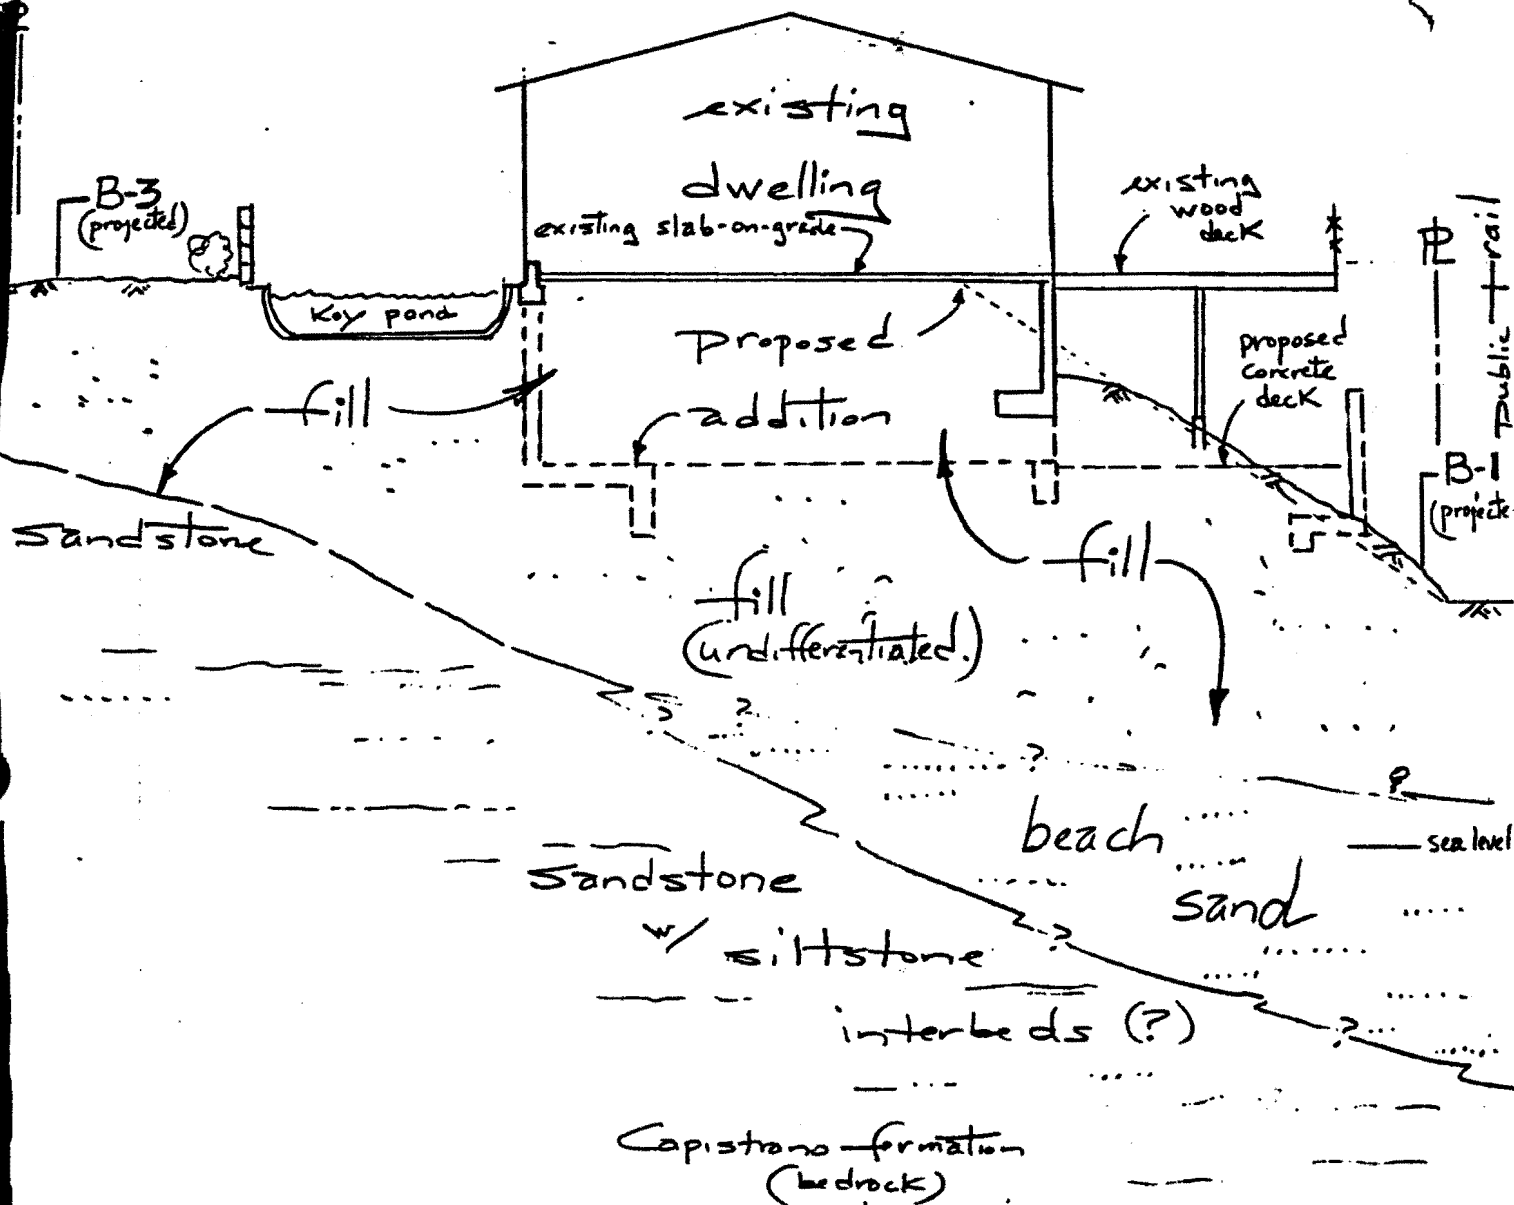 existing
dwelling
existing slab-on-grade
existing
wood
deck
B-3
(projected)
Koy pond
proposed
addition
proposed
concrete
deck
PL
public trail
B-1
fill
fill
fill
(undifferentiated.)
Sandstone
?
?
?
?
beach
sand
sea level
Sandstone
w/ siltstone
interbeds (?)
?
?
Capistrano formation
(bedrock)